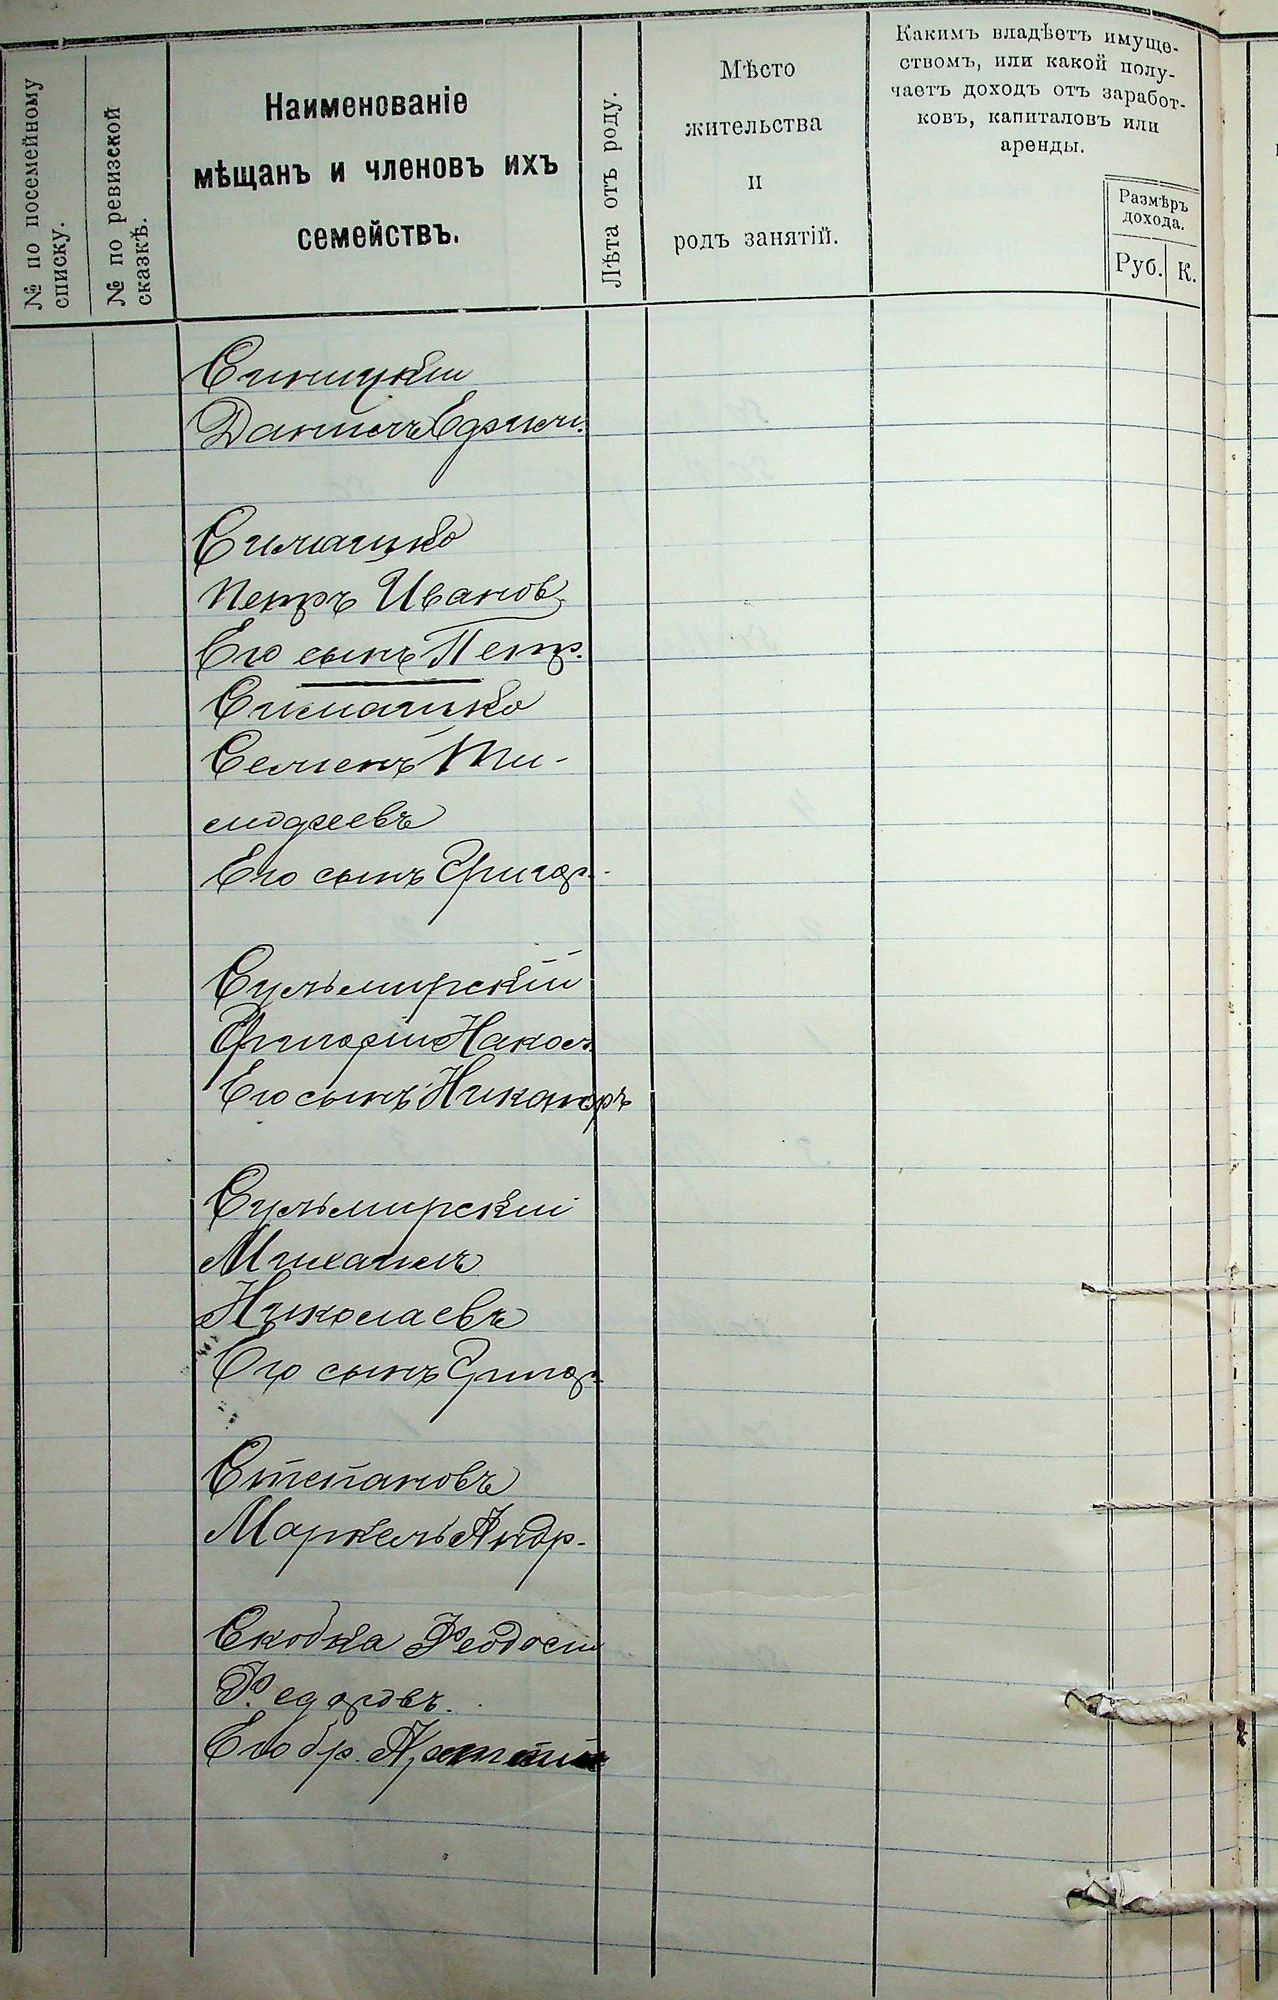 № по посемейному
списку.
№ по ревизской
сказкѣ.
Наименованіе
мѣщанъ и членовъ ихъ
семействъ.
Лѣта отъ роду.
Мѣсто
жительства
и
родъ занятій.
Какимъ владѣетъ имуще-
ствомъ, или какой полу-
чаетъ доходъ отъ заработ-
ковъ, капиталовъ или
аренды.
Размѣръ
дохода.
Руб.
К.
Синицкій
Данилъ Ефим.
Симашко
Петръ Иванов
Его сынъ Петр.
Симашко
Семенъ Ти-
мофеевъ
Его сынъ Григор.
Сульмирскій
Григорій
Его сынъ Никаноръ
Сульмирскій
Михаилъ
Николаевъ
Его сынъ Григор.
Степановъ
Маркелъ Андр.
Скобка Феодосій
Федоровъ.
Его бр.